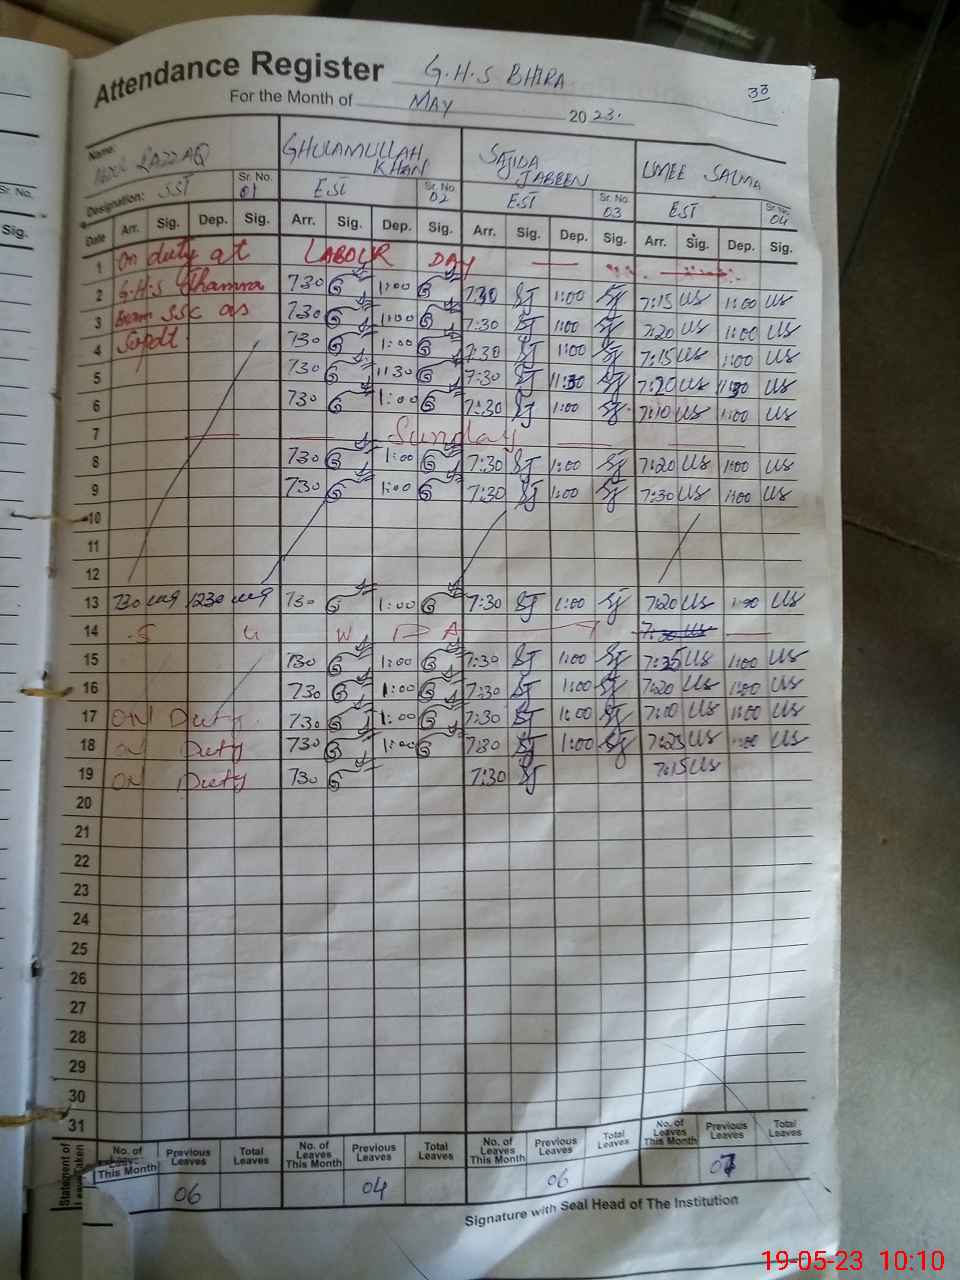 Attendance Register G.H.S BHIRA
33
For the Month of MAY 2023.
Name: ABDUL RAZZAQ GHULAMULLAH KHAN SAJIDA JABEEN UMEE SALMA
Designation: SST Sr. No. 01 EST Sr. No. 02 EST Sr. No. 03 EST Sr. No. 04
Date Arr. Sig. Dep. Sig. Arr. Sig. Dep. Sig. Arr. Sig. Dep. Sig. Arr. Sig. Dep. Sig.
1 On duty at LABOUR DAY
2 G.H.S 730 1:00 730 SJ 1:00 SJ 7:15 US 1:00 US
3 SSC as 730 1:00 7:30 SJ 1:00 SJ 7:20 US 1:00 US
4 Supdt 730 1:00 7:30 SJ 1:00 SJ 7:15 US 1:00 US
5 730 1130 7:30 SJ 11:30 SJ 7:20 US 1130 US
6 730 1:00 7:30 SJ 1:00 SJ 7:10 US 1:00 US
7 Sunday
8 730 1:00 7:30 SJ 1:00 SJ 7:20 US 1:00 US
9 730 1:00 7:30 SJ 1:00 SJ 7:30 US 1:00 US
10
11
12
13 730 1230 730 1:00 7:30 SJ 1:00 SJ 7:20 US 1:00 US
14 S U N D A Y
15 730 1:00 7:30 SJ 1:00 SJ 7:35 US 1:00 US
16 730 1:00 7:30 SJ 1:00 SJ 7:20 US 1:00 US
17 ON Duty 730 1:00 7:30 SJ 1:00 SJ 7:10 US 1:00 US
18 ON Duty 730 1:00 7:30 SJ 1:00 SJ 7:25 US 1:00 US
19 ON Duty 730 7:30 SJ 7:15 US
20
21
22
23
24
25
26
27
28
29
30
31
Statement of Leave Taken No. of Leaves This Month Previous Leaves Total Leaves No. of Leaves This Month Previous Leaves Total Leaves No. of Leaves This Month Previous Leaves Total Leaves No. of Leaves This Month Previous Leaves Total Leaves
06 04 06 07
Signature with Seal Head of The Institution
19-05-23 10:10